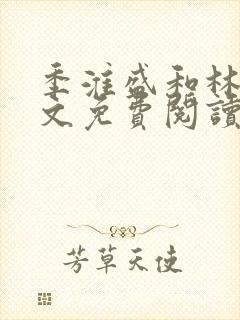 季淮盛和林
文免費閱讀
芳草天使